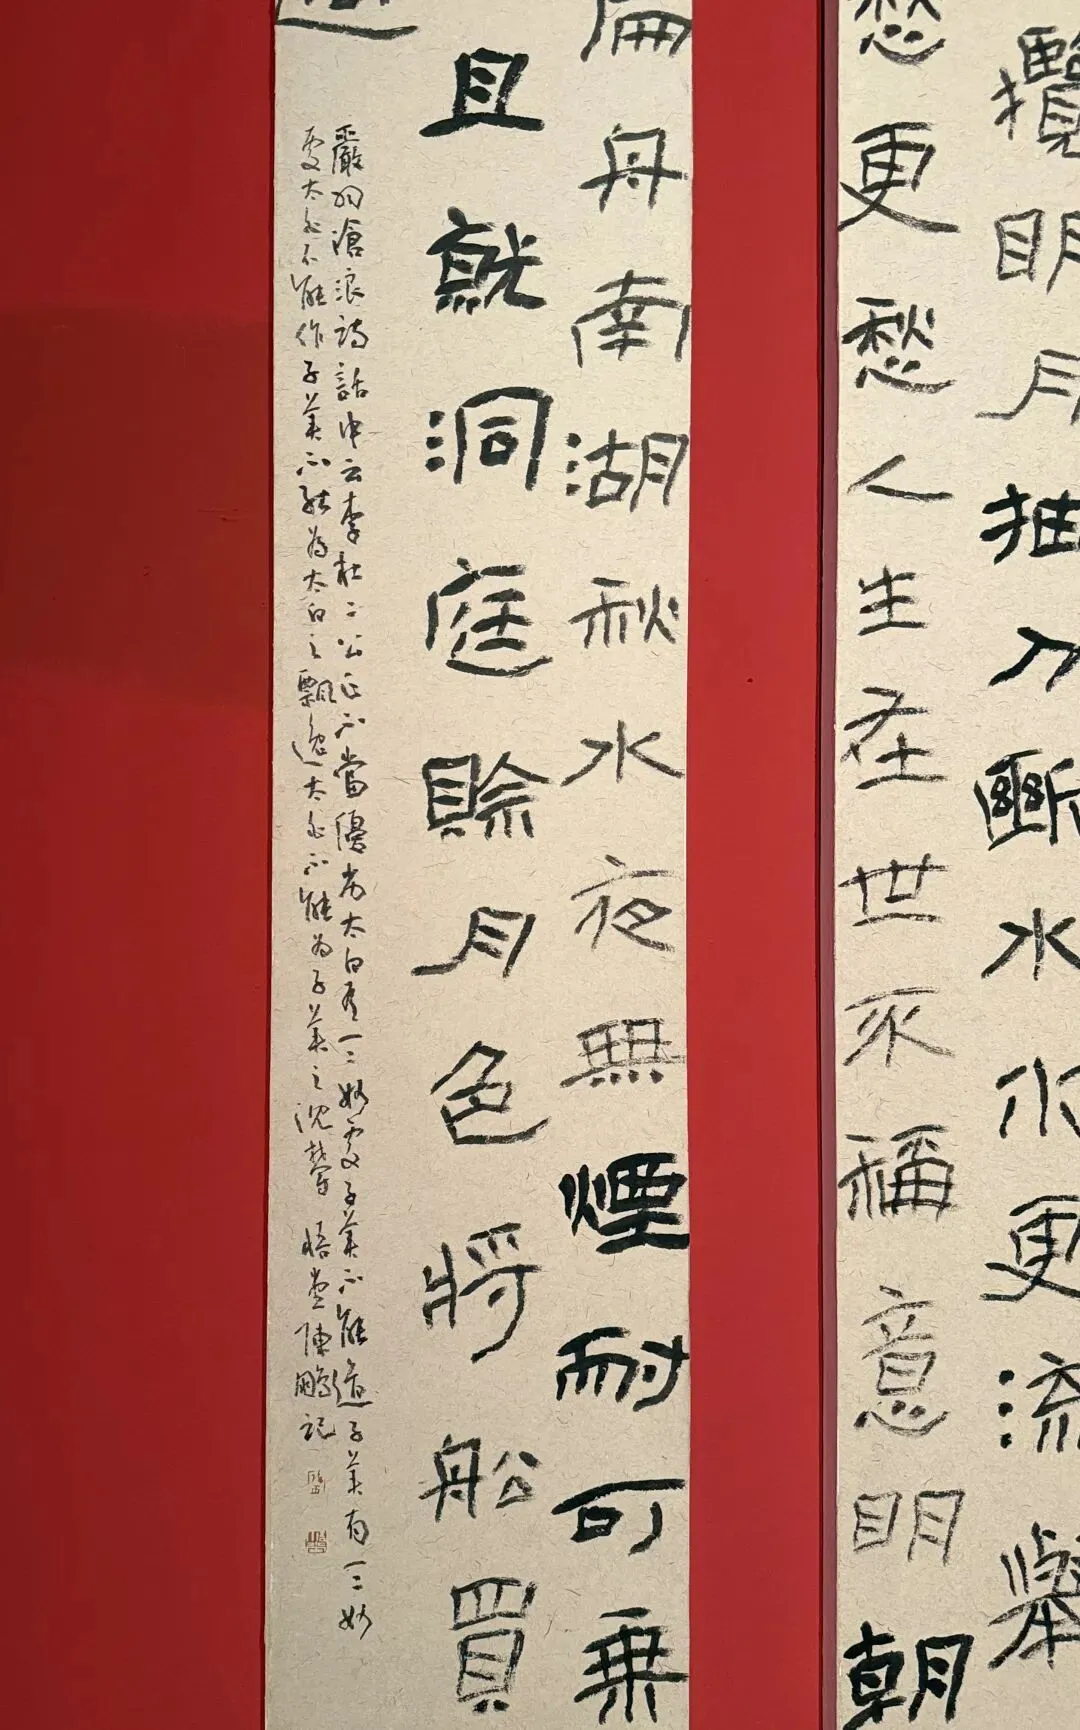 攬明月抽刀斷水水更流舉
愁更愁人生在世不稱意明朝
扁舟南湖秋水夜無煙耐可乘
且就洞庭賒月色將船買
嚴羽滄浪詩話中云李杜二公正不當優劣太白有一二妙處子美不能道子美有一二妙
處太白不能作子美不能為太白之飄逸太白不能為子美之沈鬱 悟堂陳鵬記